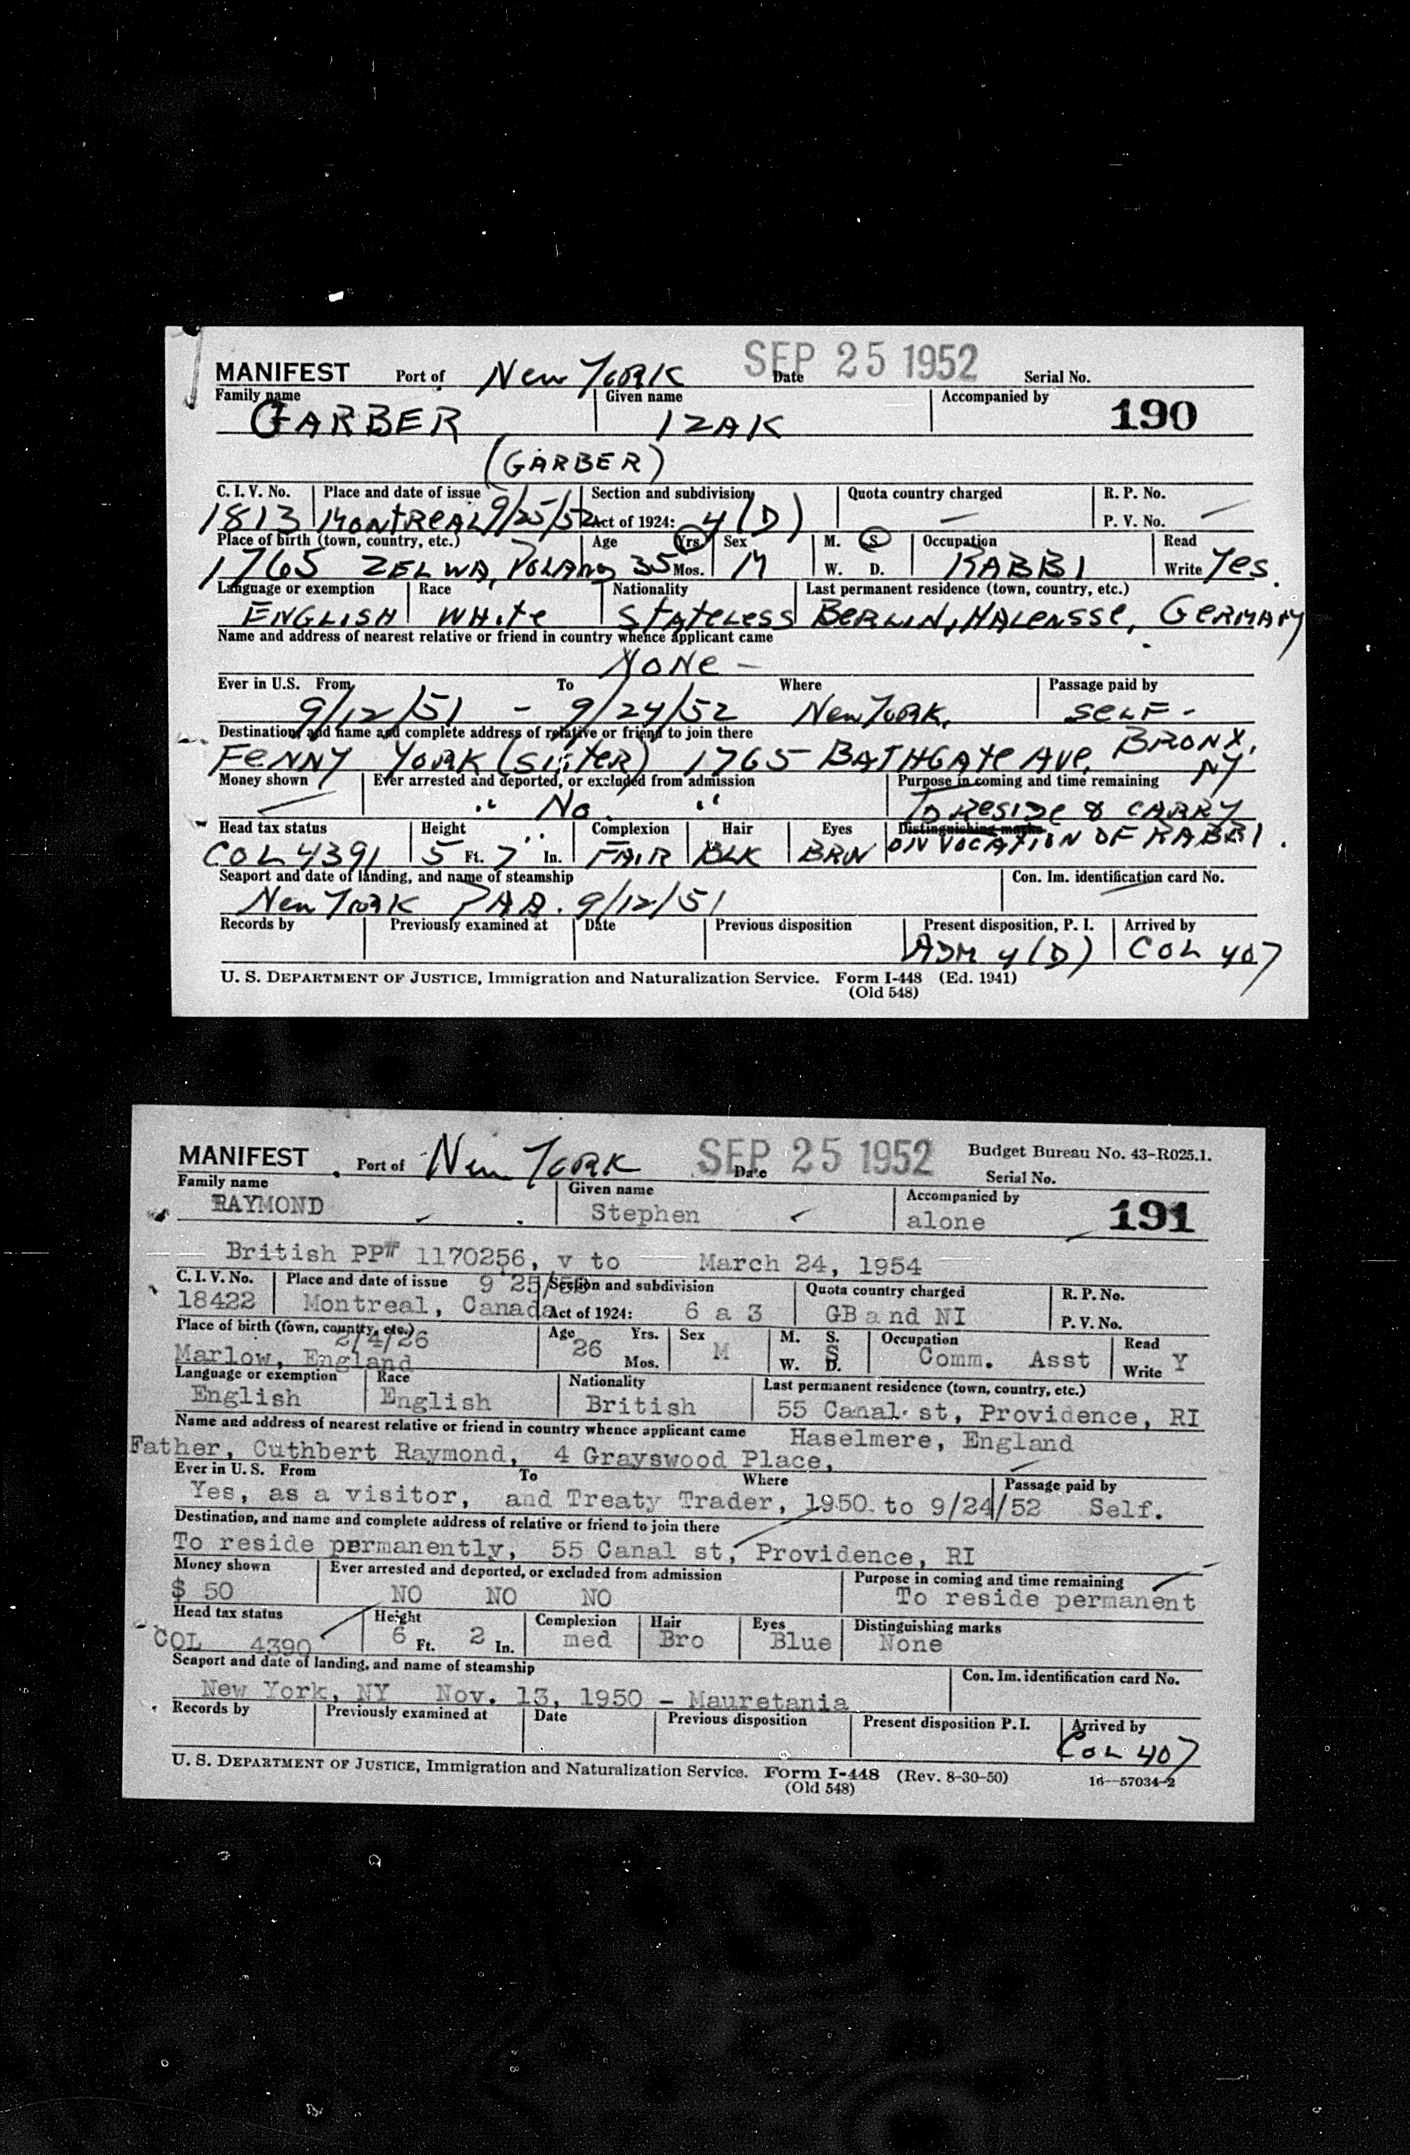 MANIFEST Port of New York SEP 25 1952 Date Serial No.
Family name GARBER Given name IZAK Accompanied by 190
(GARBER)
C. I. V. No. Place and date of issue Section and subdivision Quota country charged R. P. No.
1813 Montreal 9/25/52 Act of 1924: 4(D) — P. V. No. —
Place of birth (town, country, etc.) Age Yrs Sex M. S. Occupation Read
1765 ZELWA, POLAND 35 Mos. M W. D. RABBI Write Yes.
Language or exemption Race Nationality Last permanent residence (town, country, etc.)
ENGLISH White Stateless Berlin, Halensse, Germany
Name and address of nearest relative or friend in country whence applicant came
None —
Ever in U.S. From To Where Passage paid by
9/12/51 - 9/24/52 New York, Self -
Destination, and name and complete address of relative or friend to join there
Fenny York (Sister) 1765 Bathgate Ave, Bronx, NY
Money shown Ever arrested and deported, or excluded from admission Purpose in coming and time remaining
— " No. " To Reside & Carry
Head tax status Height Complexion Hair Eyes Distinguishing marks
COL 4391 5 Ft. 7 In. FAIR BLK BRN on vocation of Rabbi.
Seaport and date of landing, and name of steamship Con. Im. identification card No.
New York PAA. 9/12/51 —
Records by Previously examined at Date Previous disposition Present disposition, P. I. Arrived by
ADM 4(D) COL 407
U. S. DEPARTMENT OF JUSTICE, Immigration and Naturalization Service. Form I-448 (Ed. 1941)
(Old 548)
MANIFEST Port of New York SEP 25 1952 Date Budget Bureau No. 43-R025.1.
Serial No.
Family name Given name Accompanied by
RAYMOND Stephen alone 191
British PP# 1170256, v to March 24, 1954
C. I. V. No. Place and date of issue 9 25/52 Section and subdivision Quota country charged R. P. No.
18422 Montreal, Canada Act of 1924: 6 a 3 GB and NI P. V. No.
Place of birth (town, country, etc.) 2/4/26 Age Yrs. Sex M. S. Occupation Read
Marlow, England 26 Mos. M W. S D. Comm. Asst Write Y
Language or exemption Race Nationality Last permanent residence (town, country, etc.)
English English British 55 Canal st, Providence, RI
Name and address of nearest relative or friend in country whence applicant came Haselmere, England
Father, Cuthbert Raymond, 4 Grayswood Place,
Ever in U. S. From To Where Passage paid by
Yes, as a visitor, and Treaty Trader, 1950 to 9/24/52 Self.
Destination, and name and complete address of relative or friend to join there
To reside permanently, 55 Canal st, Providence, RI
Money shown Ever arrested and deported, or excluded from admission Purpose in coming and time remaining
$ 50 NO NO NO To reside permanent
Head tax status Height Complexion Hair Eyes Distinguishing marks
COL 4390 6 Ft. 2 In. med Bro Blue None
Seaport and date of landing, and name of steamship Con. Im. identification card No.
New York, NY Nov. 13, 1950 - Mauretania
Records by Previously examined at Date Previous disposition Present disposition P. I. Arrived by
COL 407
U. S. DEPARTMENT OF JUSTICE, Immigration and Naturalization Service. Form I-448 (Rev. 8-30-50) 16—57034-2
(Old 548)